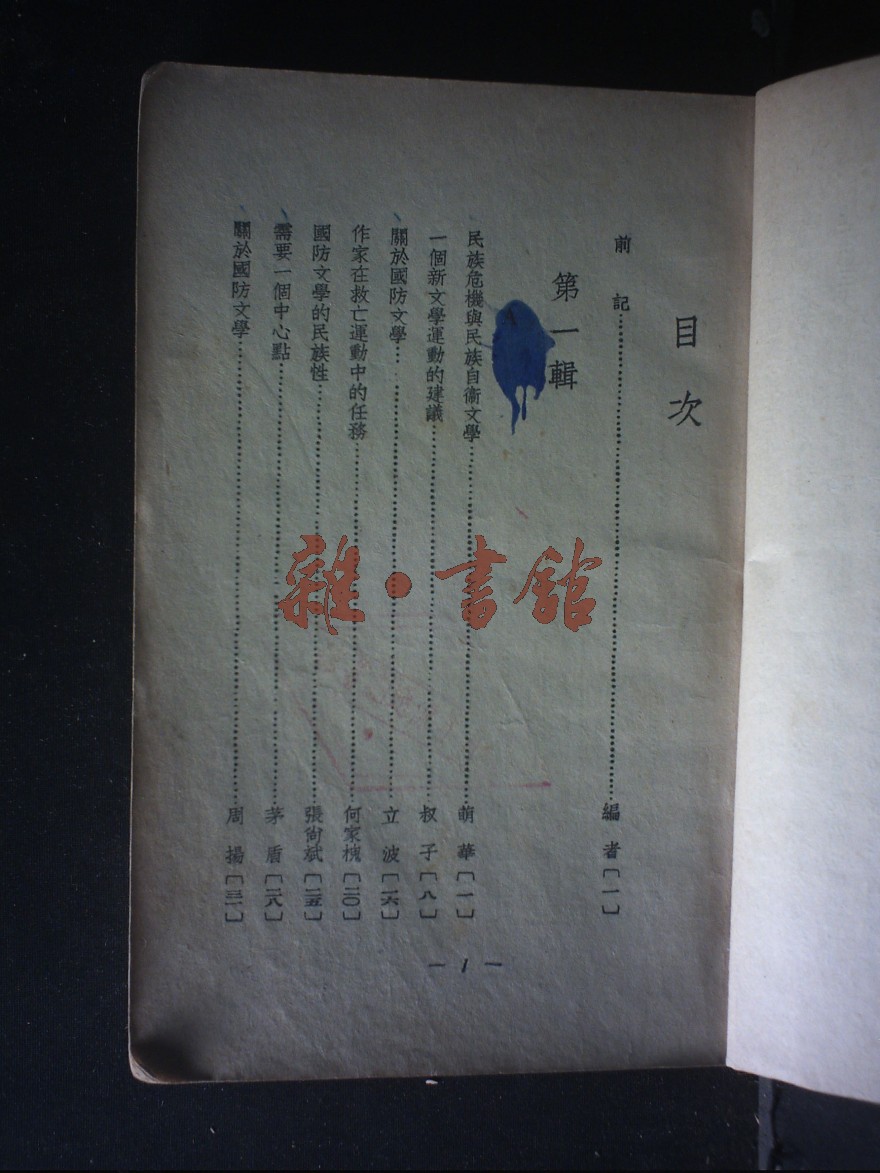 目次
前記……編者〔一〕
第一輯
民族危機與民族自衞文學……萌華〔一〕
一個新文學運動的建議……叔子〔八〕
關於國防文學……立波〔一六〕
作家在救亡運動中的任務……何家槐〔二〇〕
國防文學的民族性……張尙斌〔二五〕
需要一個中心點……茅盾〔二八〕
關於國防文學……周揚〔三一〕
— 1 —
雜·書館